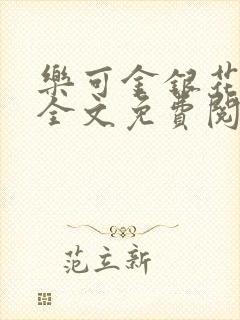 樂可金銀花
全文免費閱
范立新